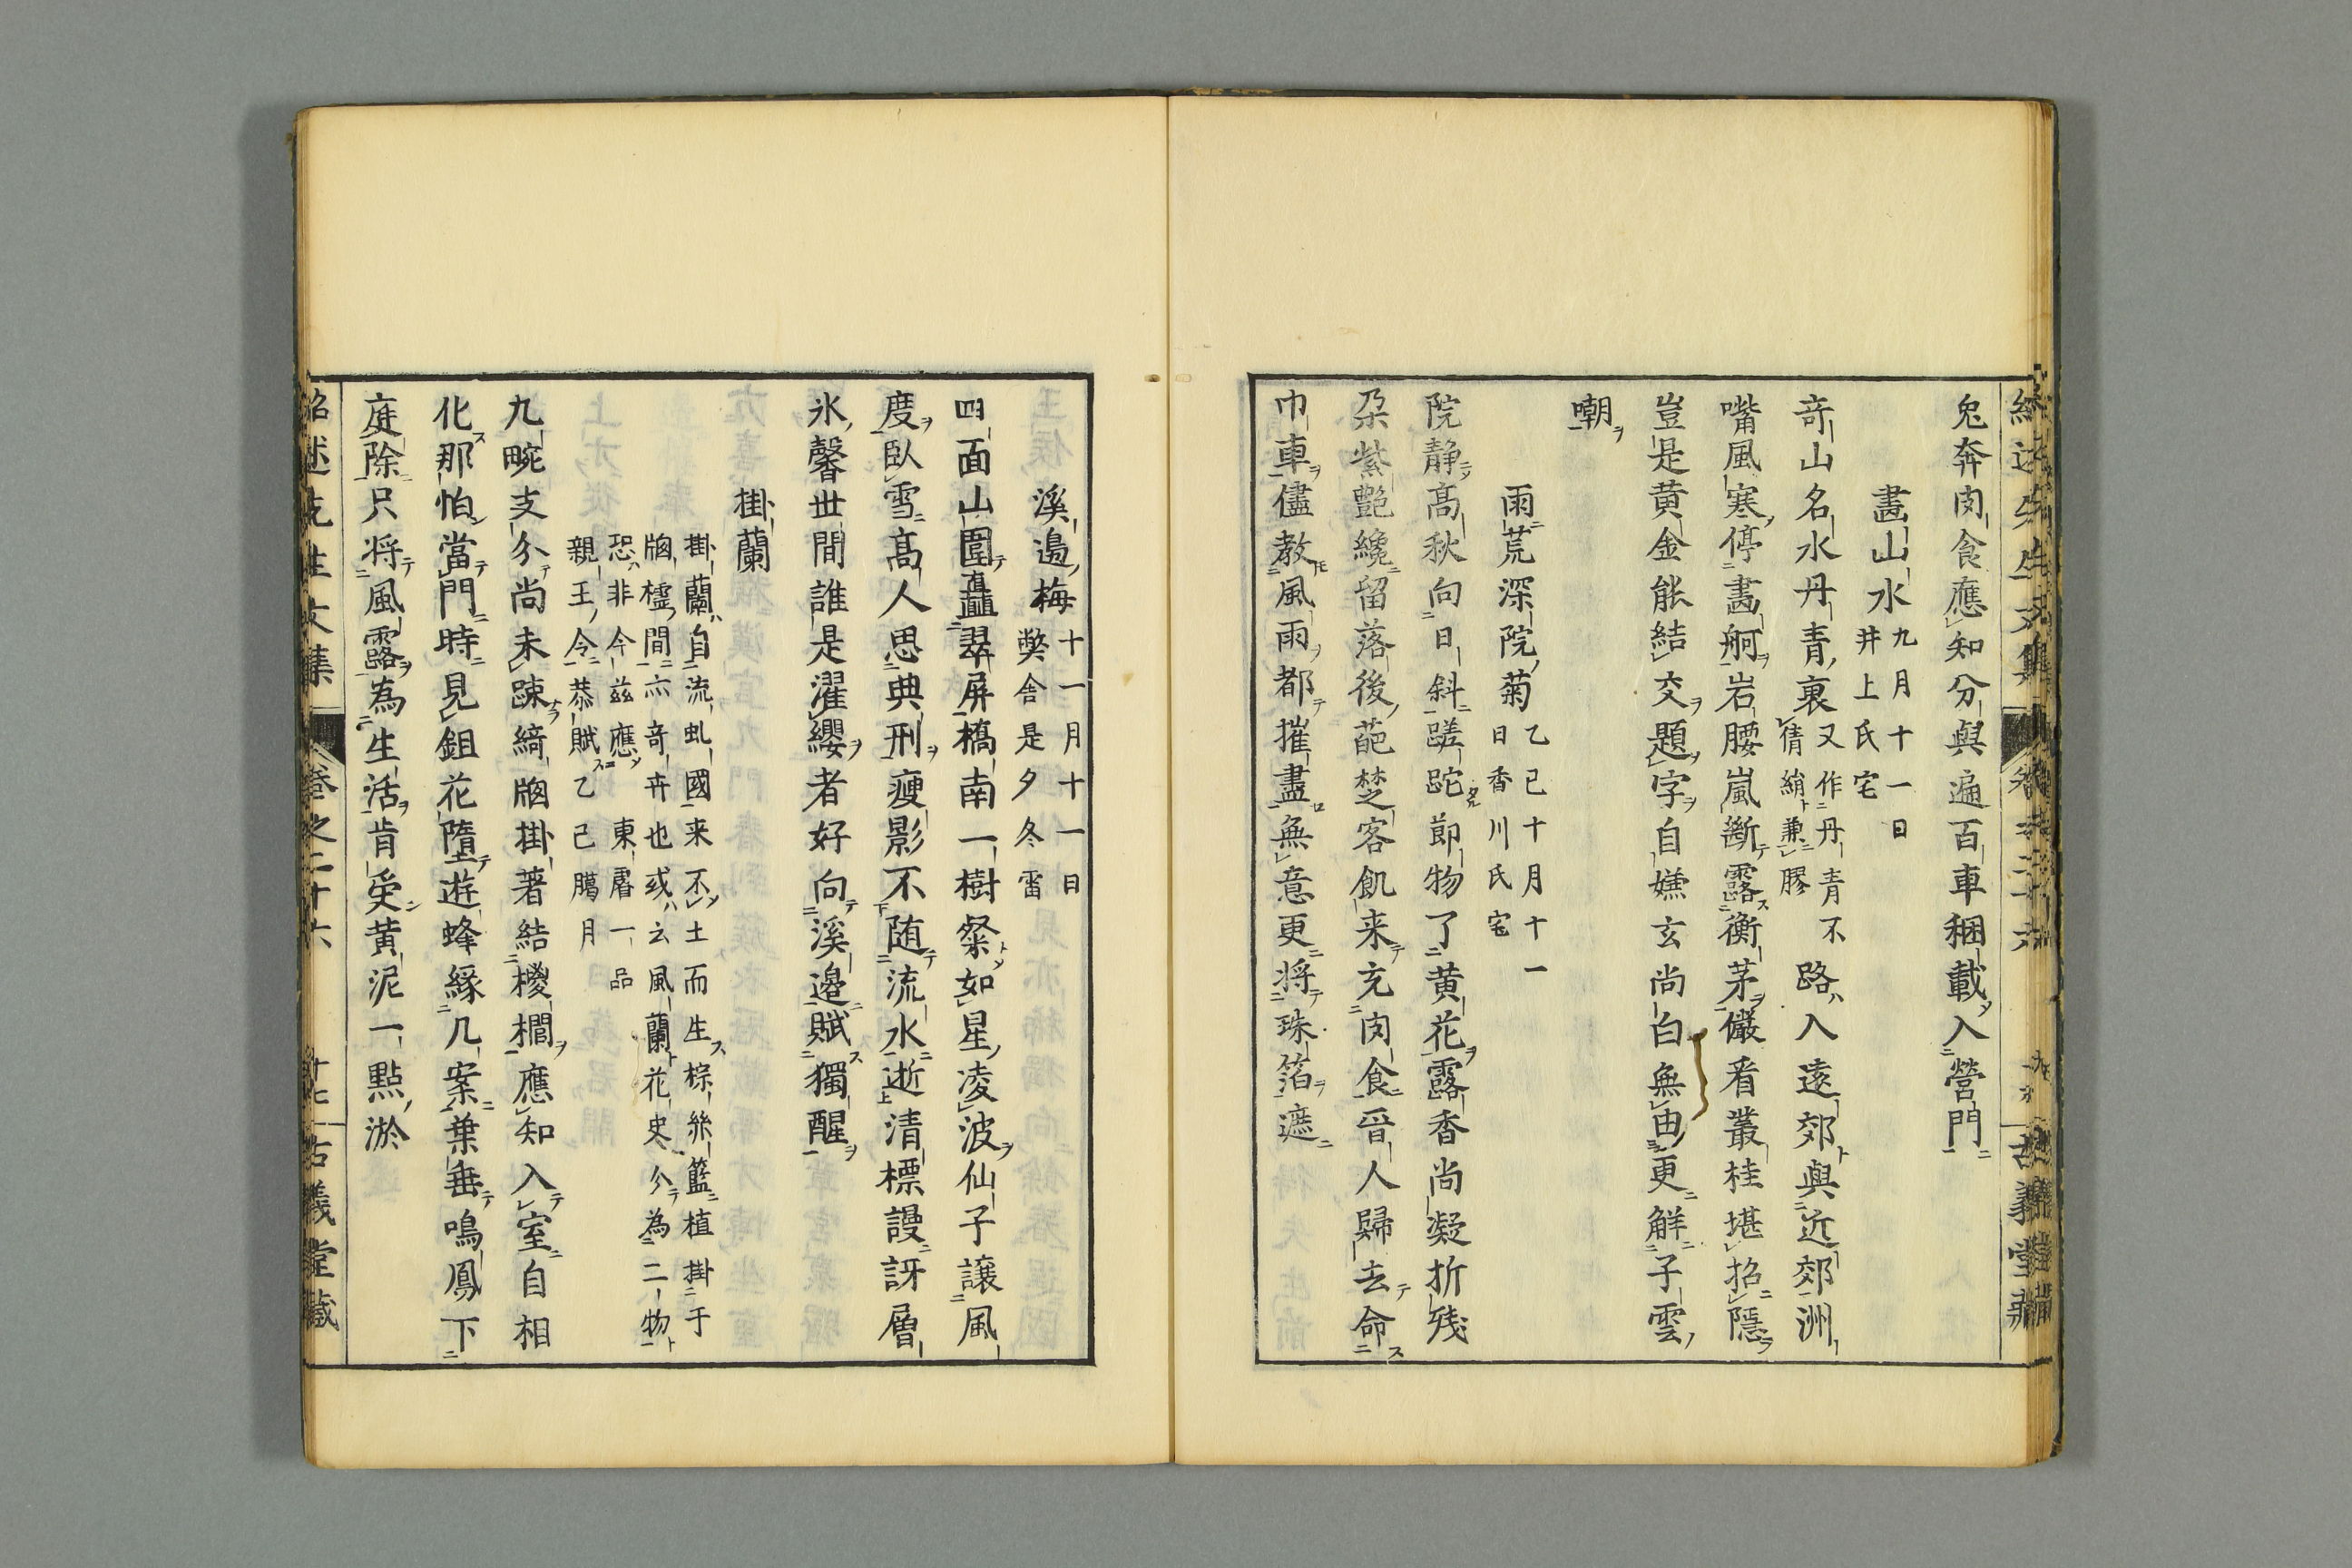 兔奔肉食應知分與遍百車稇載入營門
畫山水
九月十一日
井上氏宅
奇山名水丹青裏
又作丹青不
倩綃兼膠
路入遠郊與近郊洲
嘴風寒停畵舸岩腰嵐斷露衡茅儼看叢桂堪招隱
豈是黄金能結交題字自嫌玄尚白無由更解子雲
嘲
雨荒深院菊
乙已十月十一
日香川氏宅
院静高秋向日斜蹉跎節物了黄花露香尚凝折残
朶紫艶纔留落後葩楚客飢来充肉食晋人歸去命
巾車儘教風雨都摧盡無意更将珠箔遮
溪邉梅
十一月十一日
弊舎是夕冬雷
四面山圍矗翠屏橋南一樹粲如星凌波仙子讓風
度臥雪高人思典刑痩影不随流水逝清標謾訝層
氷馨世間誰是濯纓者好向溪邉賦獨醒
掛蘭
掛蘭自流虬國来不土而生棕絲籃植掛于
牕櫺間亦奇卉也或云風蘭花史分為二物
恐非今茲應東㞐一品
親王令恭賦乙已臈月
九畹支分尚未踈綺牕掛著結櫻櫚應知入室自相
化那怕當門時見鉏花墮遊蜂縁几案葉垂鳴鳳下
庭除只将風露為生活肯受黄泥一點淤
紹述先生文集
卷之二十六
十七
古義堂藏